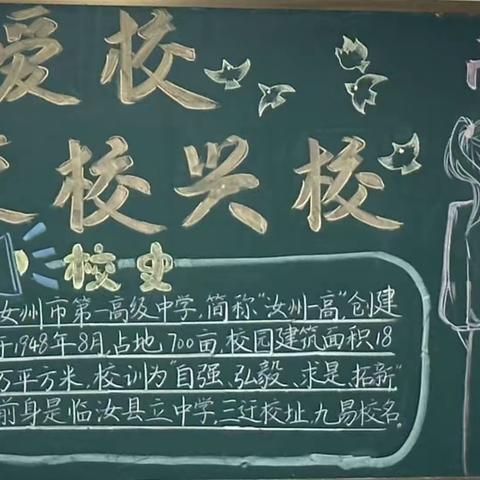 爱校
校兴校
校史
汝州市第一高级中学,简称"汝州一高",创建
于1948年8月,占地700亩,校园建筑面积18
万平方米,校训为"自强、弘毅、求是、拓新"
前身是临汝县立中学,三迁校址,九易校名。